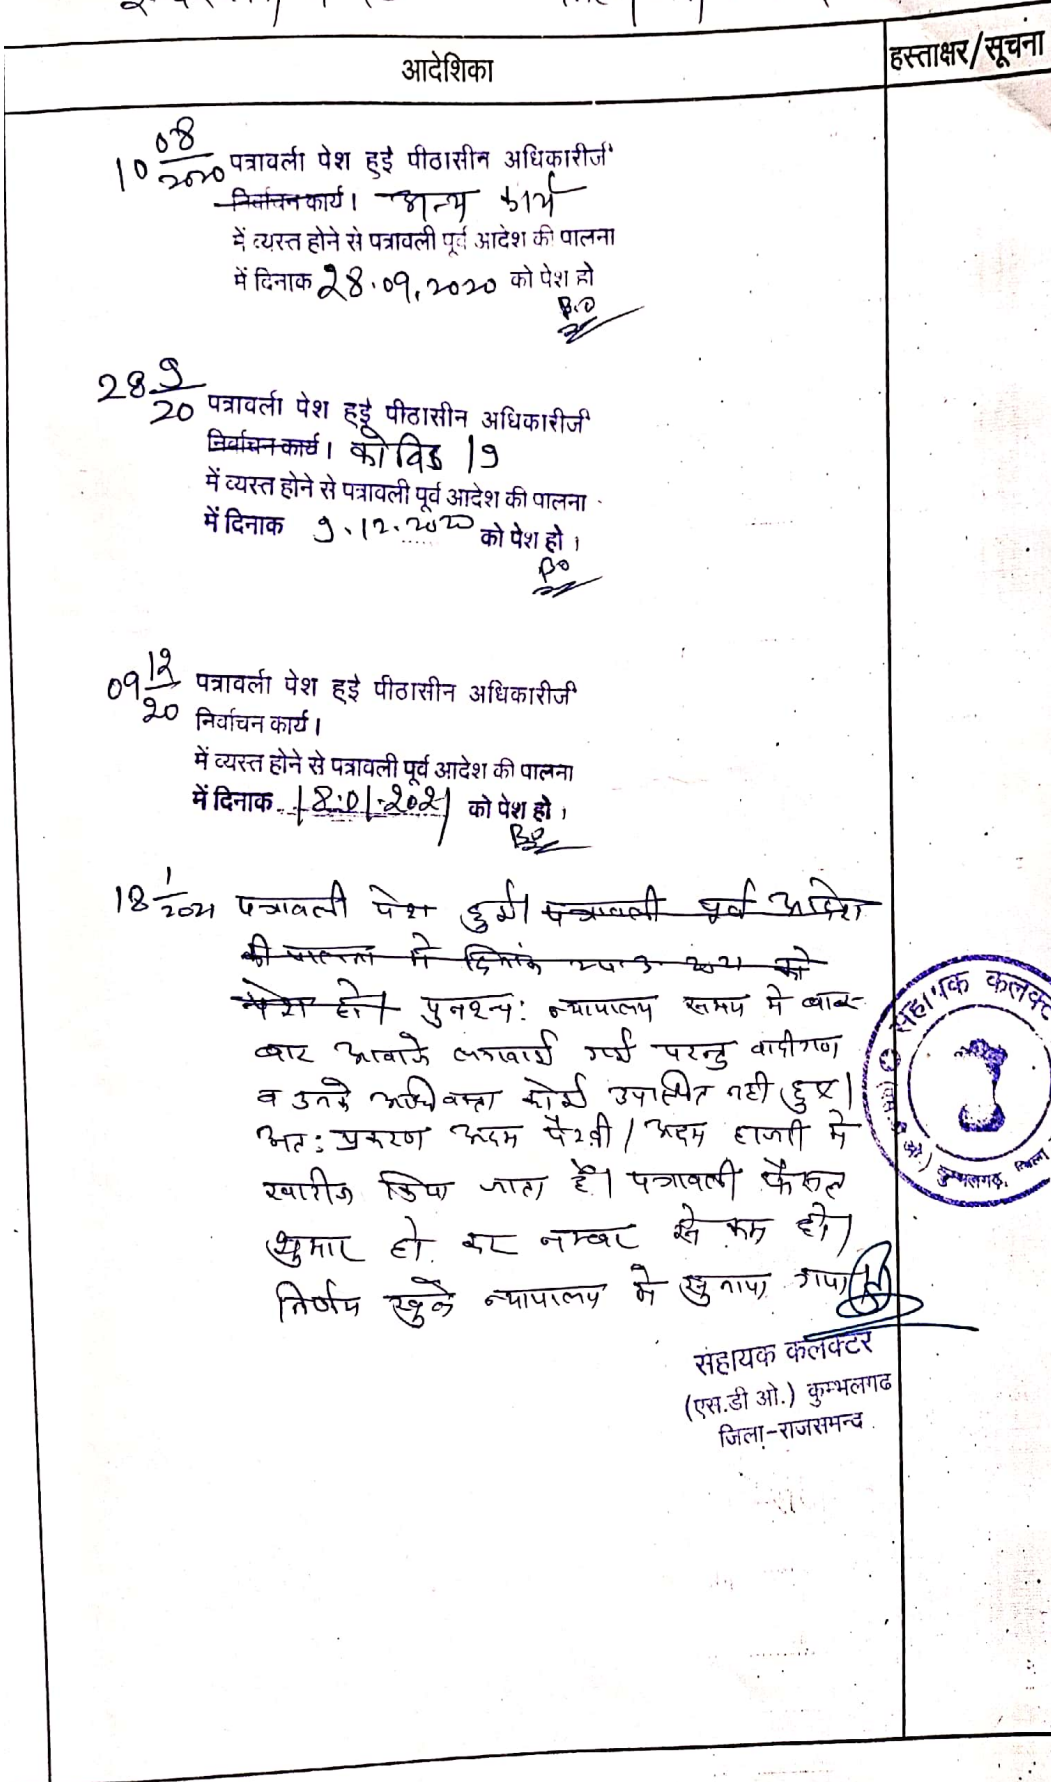 आदेशिका
हस्ताक्षर/सूचना
10 08/2020 पत्रावली पेश हुई पीठासीन अधिकारीजी
निर्वाचन कार्य। अन्य कार्य
में व्यस्त होने से पत्रावली पूर्व आदेश की पालना
में दिनाक 28.09.2020 को पेश हो
B.O
28 9/20 पत्रावली पेश हुई पीठासीन अधिकारीजी
निर्वाचन कार्य। कोविड 19
में व्यस्त होने से पत्रावली पूर्व आदेश की पालना
में दिनाक 9.12.2020 को पेश हो।
BO
09 12/20 पत्रावली पेश हुई पीठासीन अधिकारीजी
निर्वाचन कार्य।
में व्यस्त होने से पत्रावली पूर्व आदेश की पालना
में दिनाक 18.01.2021 को पेश हो।
BO
18 1/2021 पत्रावली पेश हुई। पत्रावली पूर्व आदेश
की पालना में दिनांक 2021 को
पेश हो। पुनश्च: न्यायालय समय मे बार-
बार आवाजे लगवाई गई परन्तु वादीगण
व उनके अधिवक्ता कोई उपस्थित नही हुए।
अत: प्रकरण अदम पैरवी / अदम हाजरी मे
खारीज किया जाता है। पत्रावली फैसल
शुमार हो कर नम्बर से कम हो।
निर्णय खुले न्यायालय मे सुनाया गया।
सहायक कलक्टर
(एस.डी ओ.) कुम्भलगढ
जिला-राजसमन्द
सहायक कलक्टर
कुम्भलगढ़, जिला